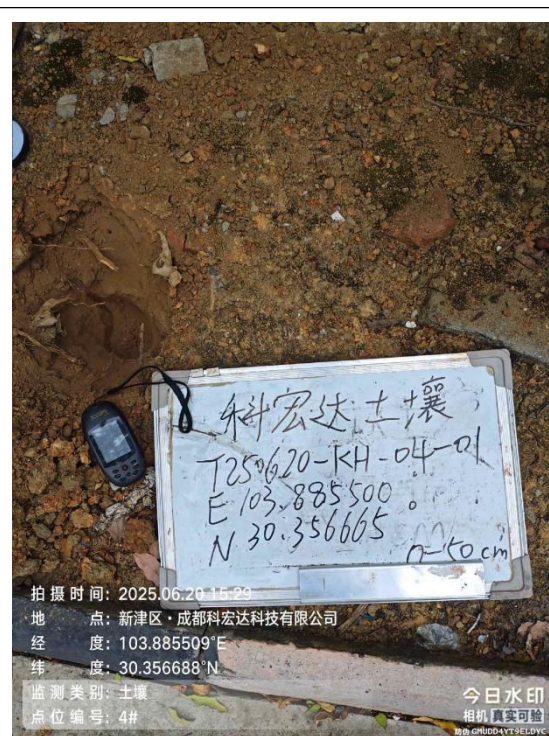 科宏达土壤
T250620-KH-04-01
E 103.885500°
N 30.356665
0-50cm
拍摄时间: 2025.06.20 15:29
地 点: 新津区·成都科宏达科技有限公司
经 度: 103.885509°E
纬 度: 30.356688°N
监测类别: 土壤
点位编号: 4#
今日水印
相机 真实可验
防伪 GMUDD4YT9ELDYC